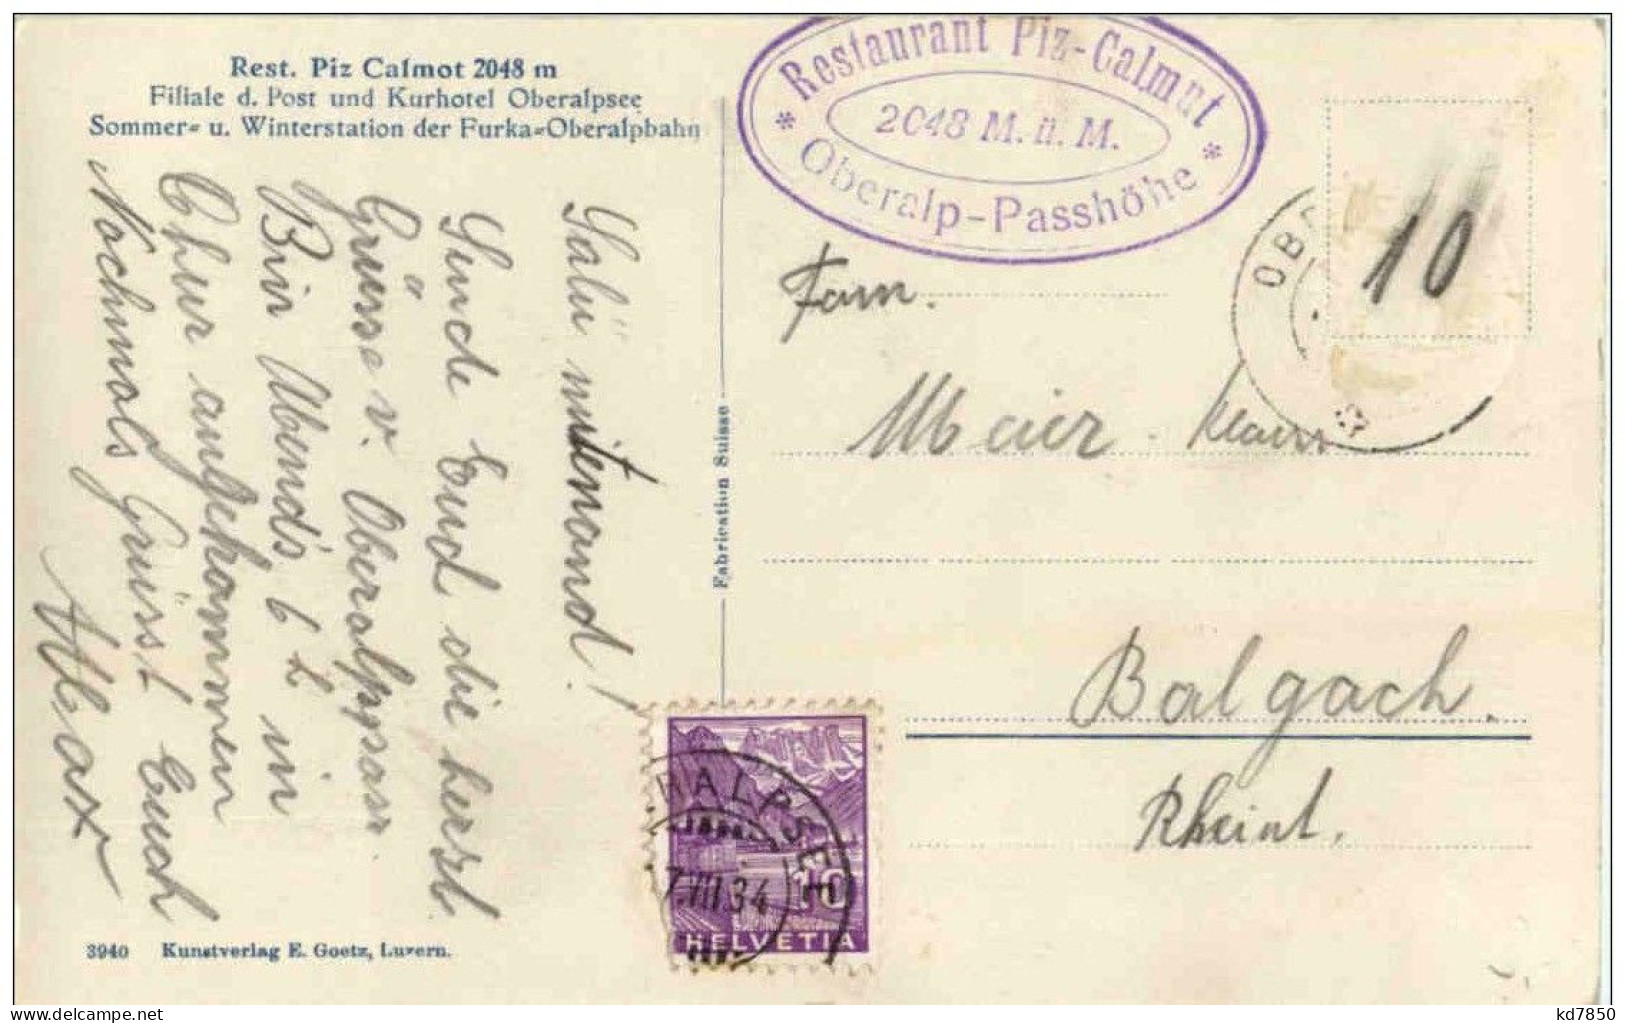 Rest. Piz Calmot 2048 m
Filiale d. Post und Kurhotel Oberalpsee
Sommer- u. Winterstation der Furka-Oberalpbahn
Salü mitenand!
Sende Eud die herzl
Grüsse v. Oberalppass
Bin Abends 6 in
Chur angekommen
Nochmals Grüsst Euch
Max
3940 Kunstverlag E. Goetz, Luzern.
Fabrication Suisse
Restaurant Piz-Calmut
2048 M. ü. M.
* Oberalp-Passhöhe *
OBE
10
Fam.
Meier-
Balgach.
Rheint.
RALPSEE
7.VIII.34
10
HELVETIA
kd7850